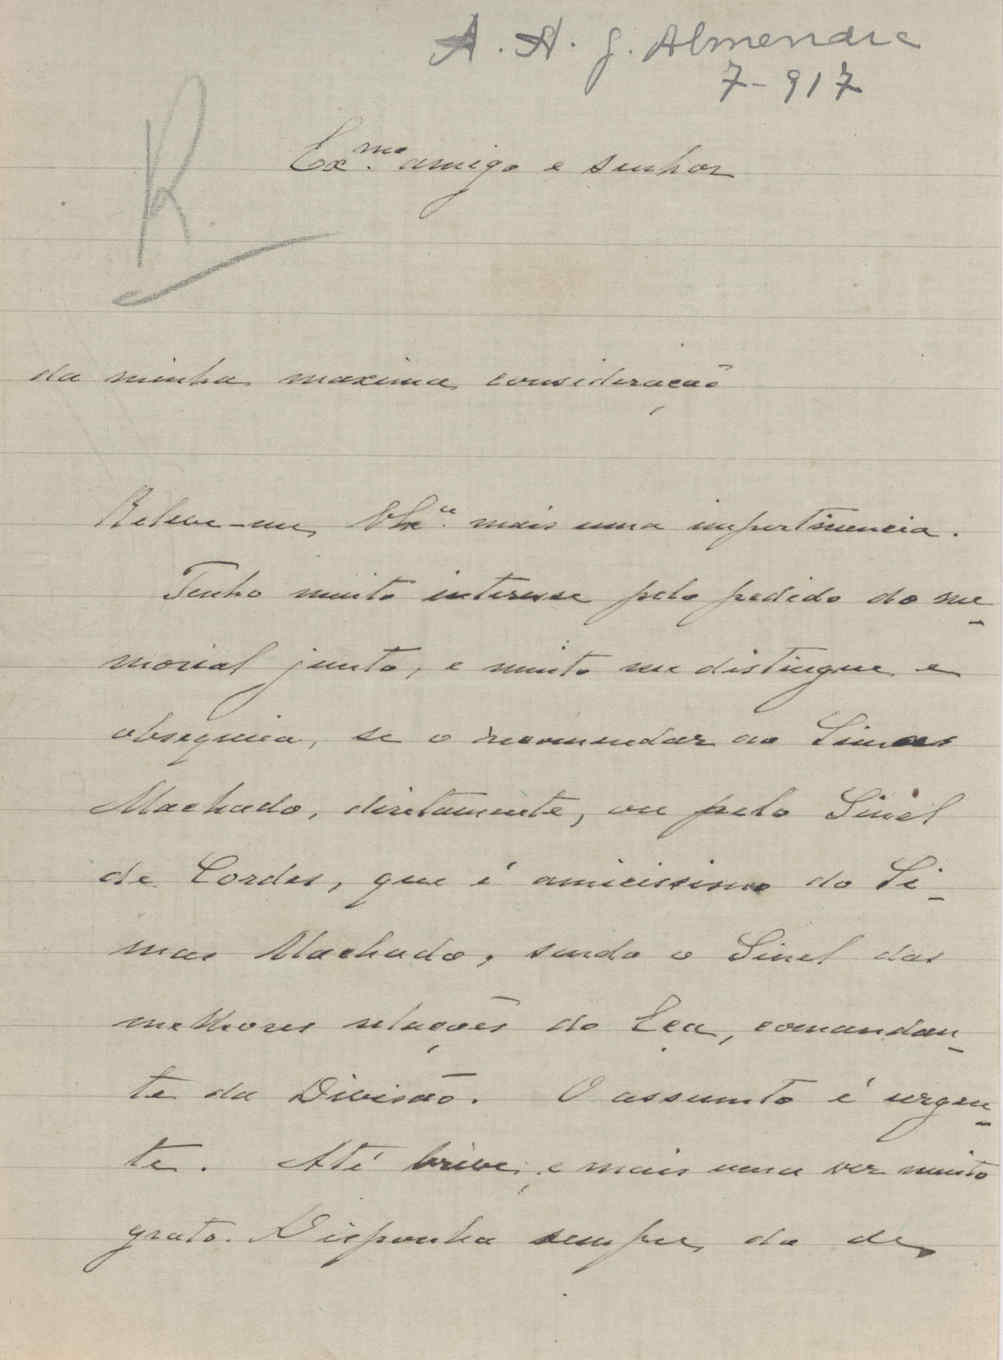 A. A. G. Almendra
7-917
R.
Ex.mo amigo e senhor
da minha maxima consideração
Releve-me V. Ex.cia mais uma impertinencia.
Tenho muito interesse pelo pedido do me-
morial junto, e muito me distingue e
obsequeia, se o recomendar ao Simas
Machado, diretamente, ou pelo Sinel
de Cordes, que é amicissimo do Si-
mas Machado, sendo o Sinel das
melhores relações do Eça, comandan-
te da Divisão. O assumto é urgen-
te. Até breve, e mais uma vez muito
grato. Disponha sempre do de